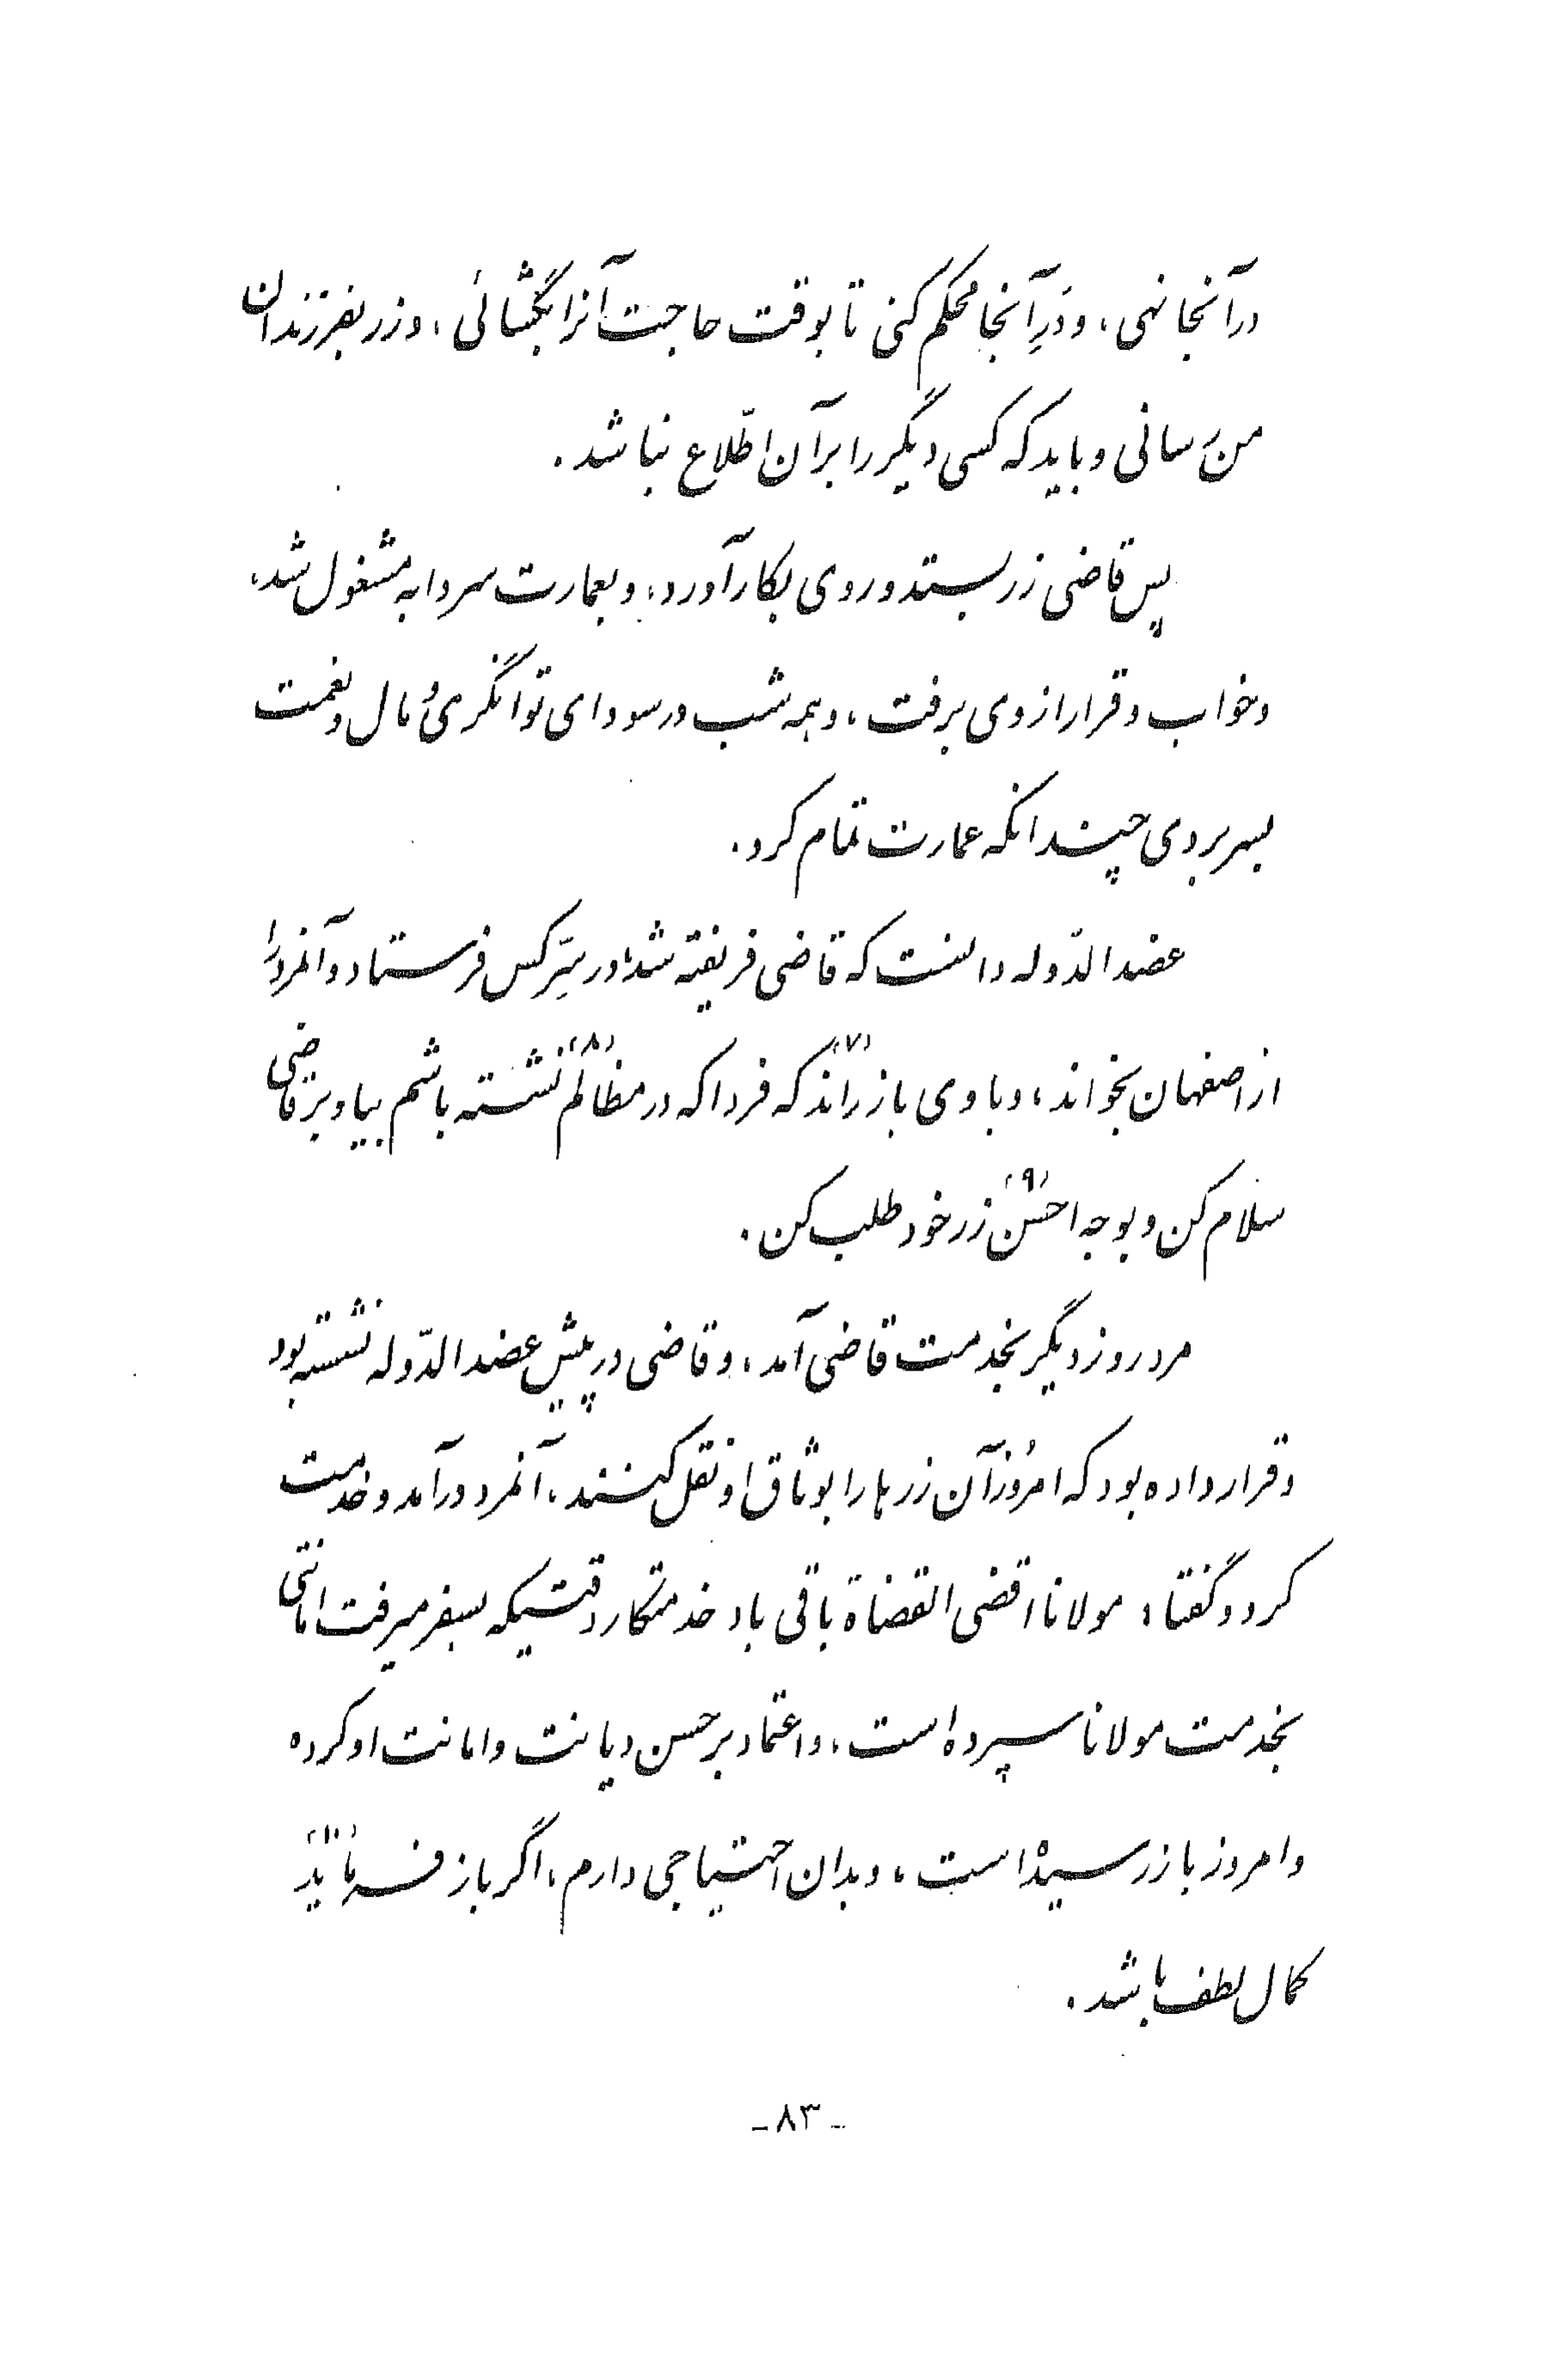 درآنجا نهی، و دَرِ آنجا محکم کنی تا بوقت حاجت آنرا بگشائی، و زر بفرزندان
من رسانی و باید که کسی دیگر را بر آن اطّلاع نباشد.
پس قاضی زر بستد و روی بکار آورد، و بعمارت سردابه مشغول شد،
و خواب و قرار از وی برفت، و همه شب در سودای توانگری و مال و نعمت
بسر بردی چندانکه عمارت تمام کرد.
عضدالدّوله دانست که قاضی فریفته شد، در سِرّ کس فرستاد و آنمرد را
از اصفهان بخواند، و با وی باز راند (۷) که فردا که در مظالم (۸) نشسته باشم بیا و بر قاضی
سلام کن و بوجه احسن (۹) زر خود طلب کن.
مرد روز دیگر بخدمت قاضی آمد، و قاضی در پیش عضدالدّوله نشسته بود
و قرار داده بود که امروز آن زرها را بوثاق او نقل کنند، آنمرد درآمد و خدمت
کرد و گفتا: مولانا اقضی القضاة باقی باد خدمتکار وقتیکه بسفر میرفت امانتی
بخدمت مولانا سپرده است، و اعتماد بر حسن دیانت و امانت او کرده
و امروز باز رسیده است، و بدان احتیاجی دارم، اگر باز فرماید (۱۰)
کمال لطف باشد.
-۸۳-